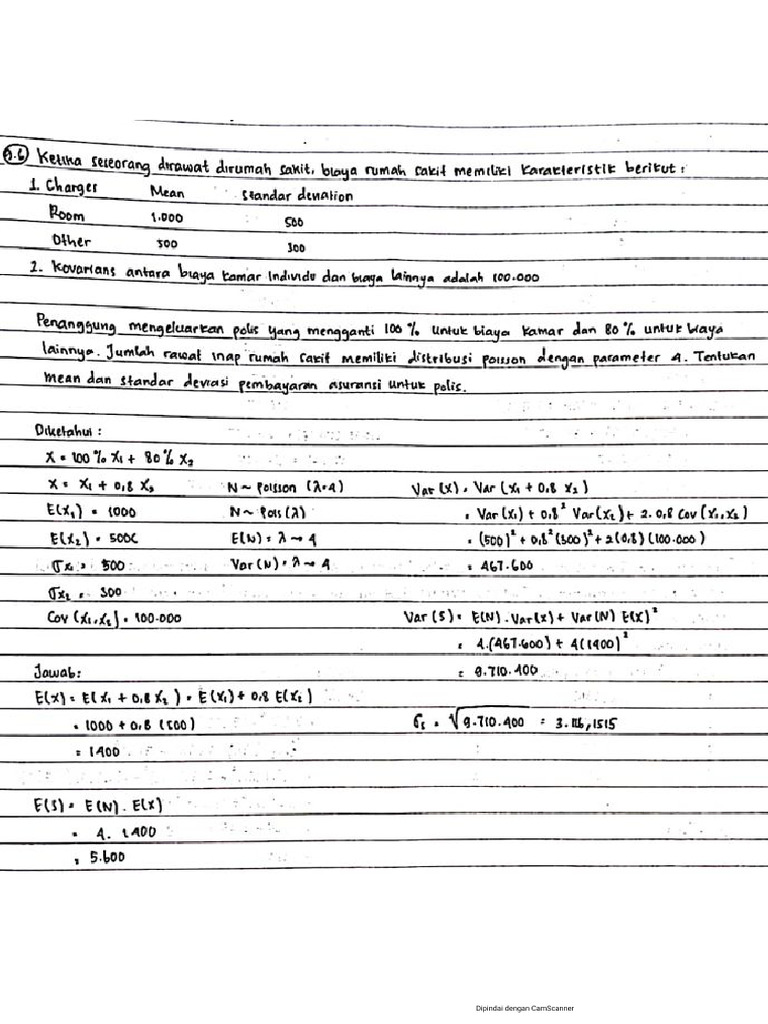 9.6) Ketika seseorang dirawat dirumah sakit, biaya rumah sakit memiliki karakteristik berikut :
1. Charges Mean Standar deviation
Room 1.000 500
Other 500 300
2. Kovarians antara biaya kamar individu dan biaya lainnya adalah 100.000
Penanggung mengeluarkan polis yang mengganti 100 % untuk biaya kamar dan 80 % untuk biaya
lainnya. Jumlah rawat inap rumah sakit memiliki distribusi poisson dengan parameter 4. Tentukan
mean dan standar deviasi pembayaran asuransi untuk polis.
Diketahui :
X = 100 % X₁ + 80 % X₂
X = X₁ + 0,8 X₂ N ~ Poisson (λ=4) Var (X) = Var (X₁ + 0.8 X₂)
E(X₁) = 1000 N ~ Pois (λ) = Var (X₁) + 0,8² Var (X₂) + 2. 0,8 Cov (X₁,X₂)
E(X₂) = 500 E(N) = λ → 4 = (500)² + 0,8² (300)² + 2 (0,8) (100.000)
σx₁ = 500 Var (N) = λ → 4 = 467.600
σx₂ = 300
Cov (X₁,X₂) = 100.000 Var (S) = E(N) . Var (X) + Var (N) E(X)²
= 4. (467.600) + 4 (1400)²
Jawab: = 9.710.400
E(X) = E(X₁ + 0,8 X₂) = E(X₁) + 0,8 E(X₂)
= 1000 + 0,8 (500) σs = √9.710.400 = 3.116,1515
= 1400
E(S) = E(N) . E(X)
= 4. 1400
= 5.600
Dipindai dengan CamScanner